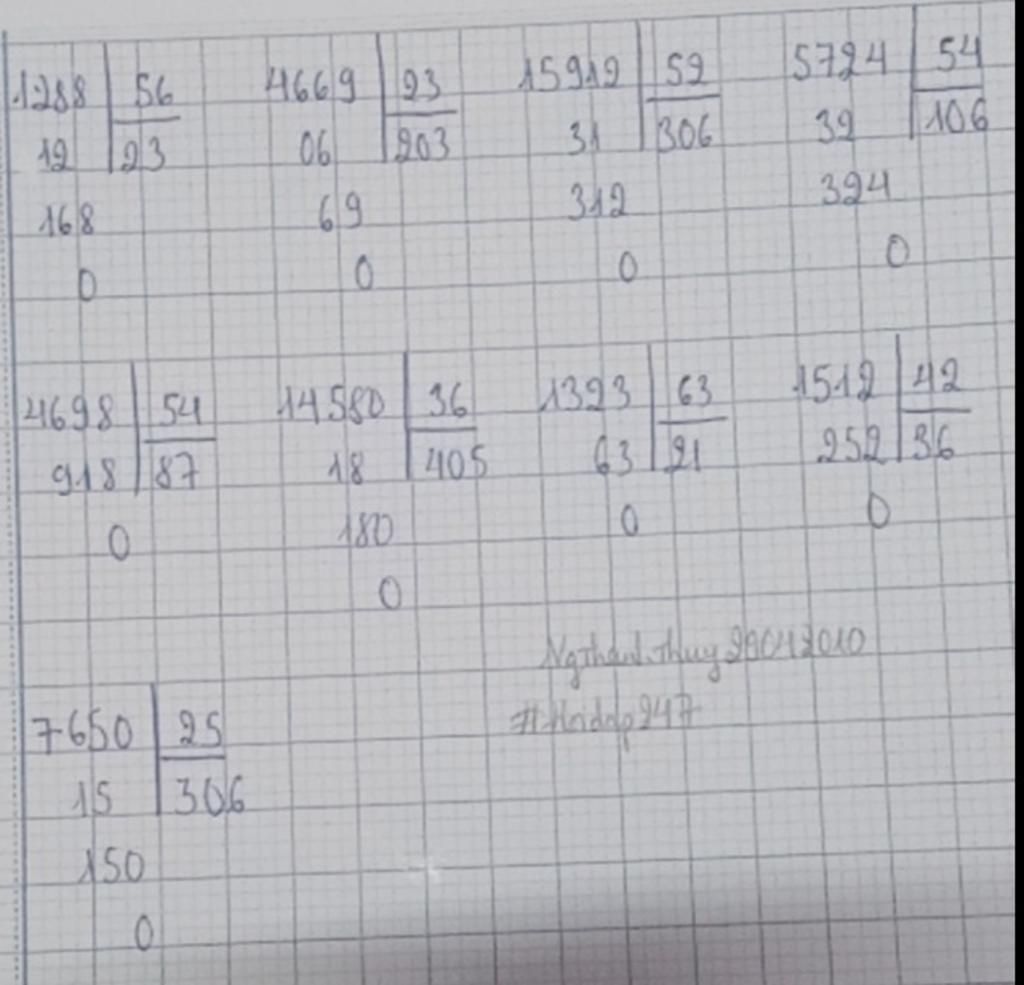 1288 56 4669 23 15912 52 5724 54
12 23 06 203 31 306 32 106
168 69 312 324
0 0 0 0
4698 54 14580 36 1323 63 1512 42
918 87 18 405 63 21 252 36
0 180 0 0
0
7650 25 #Hoidap247
15 306
150
0